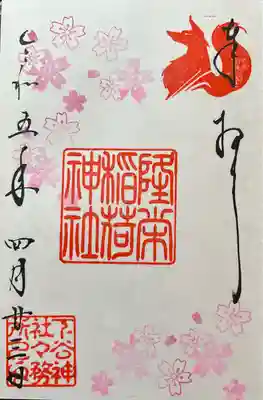 奉拝
陸榮
稲荷
神社
令和五年 四月廿三日
下谷神
社々務
所之印